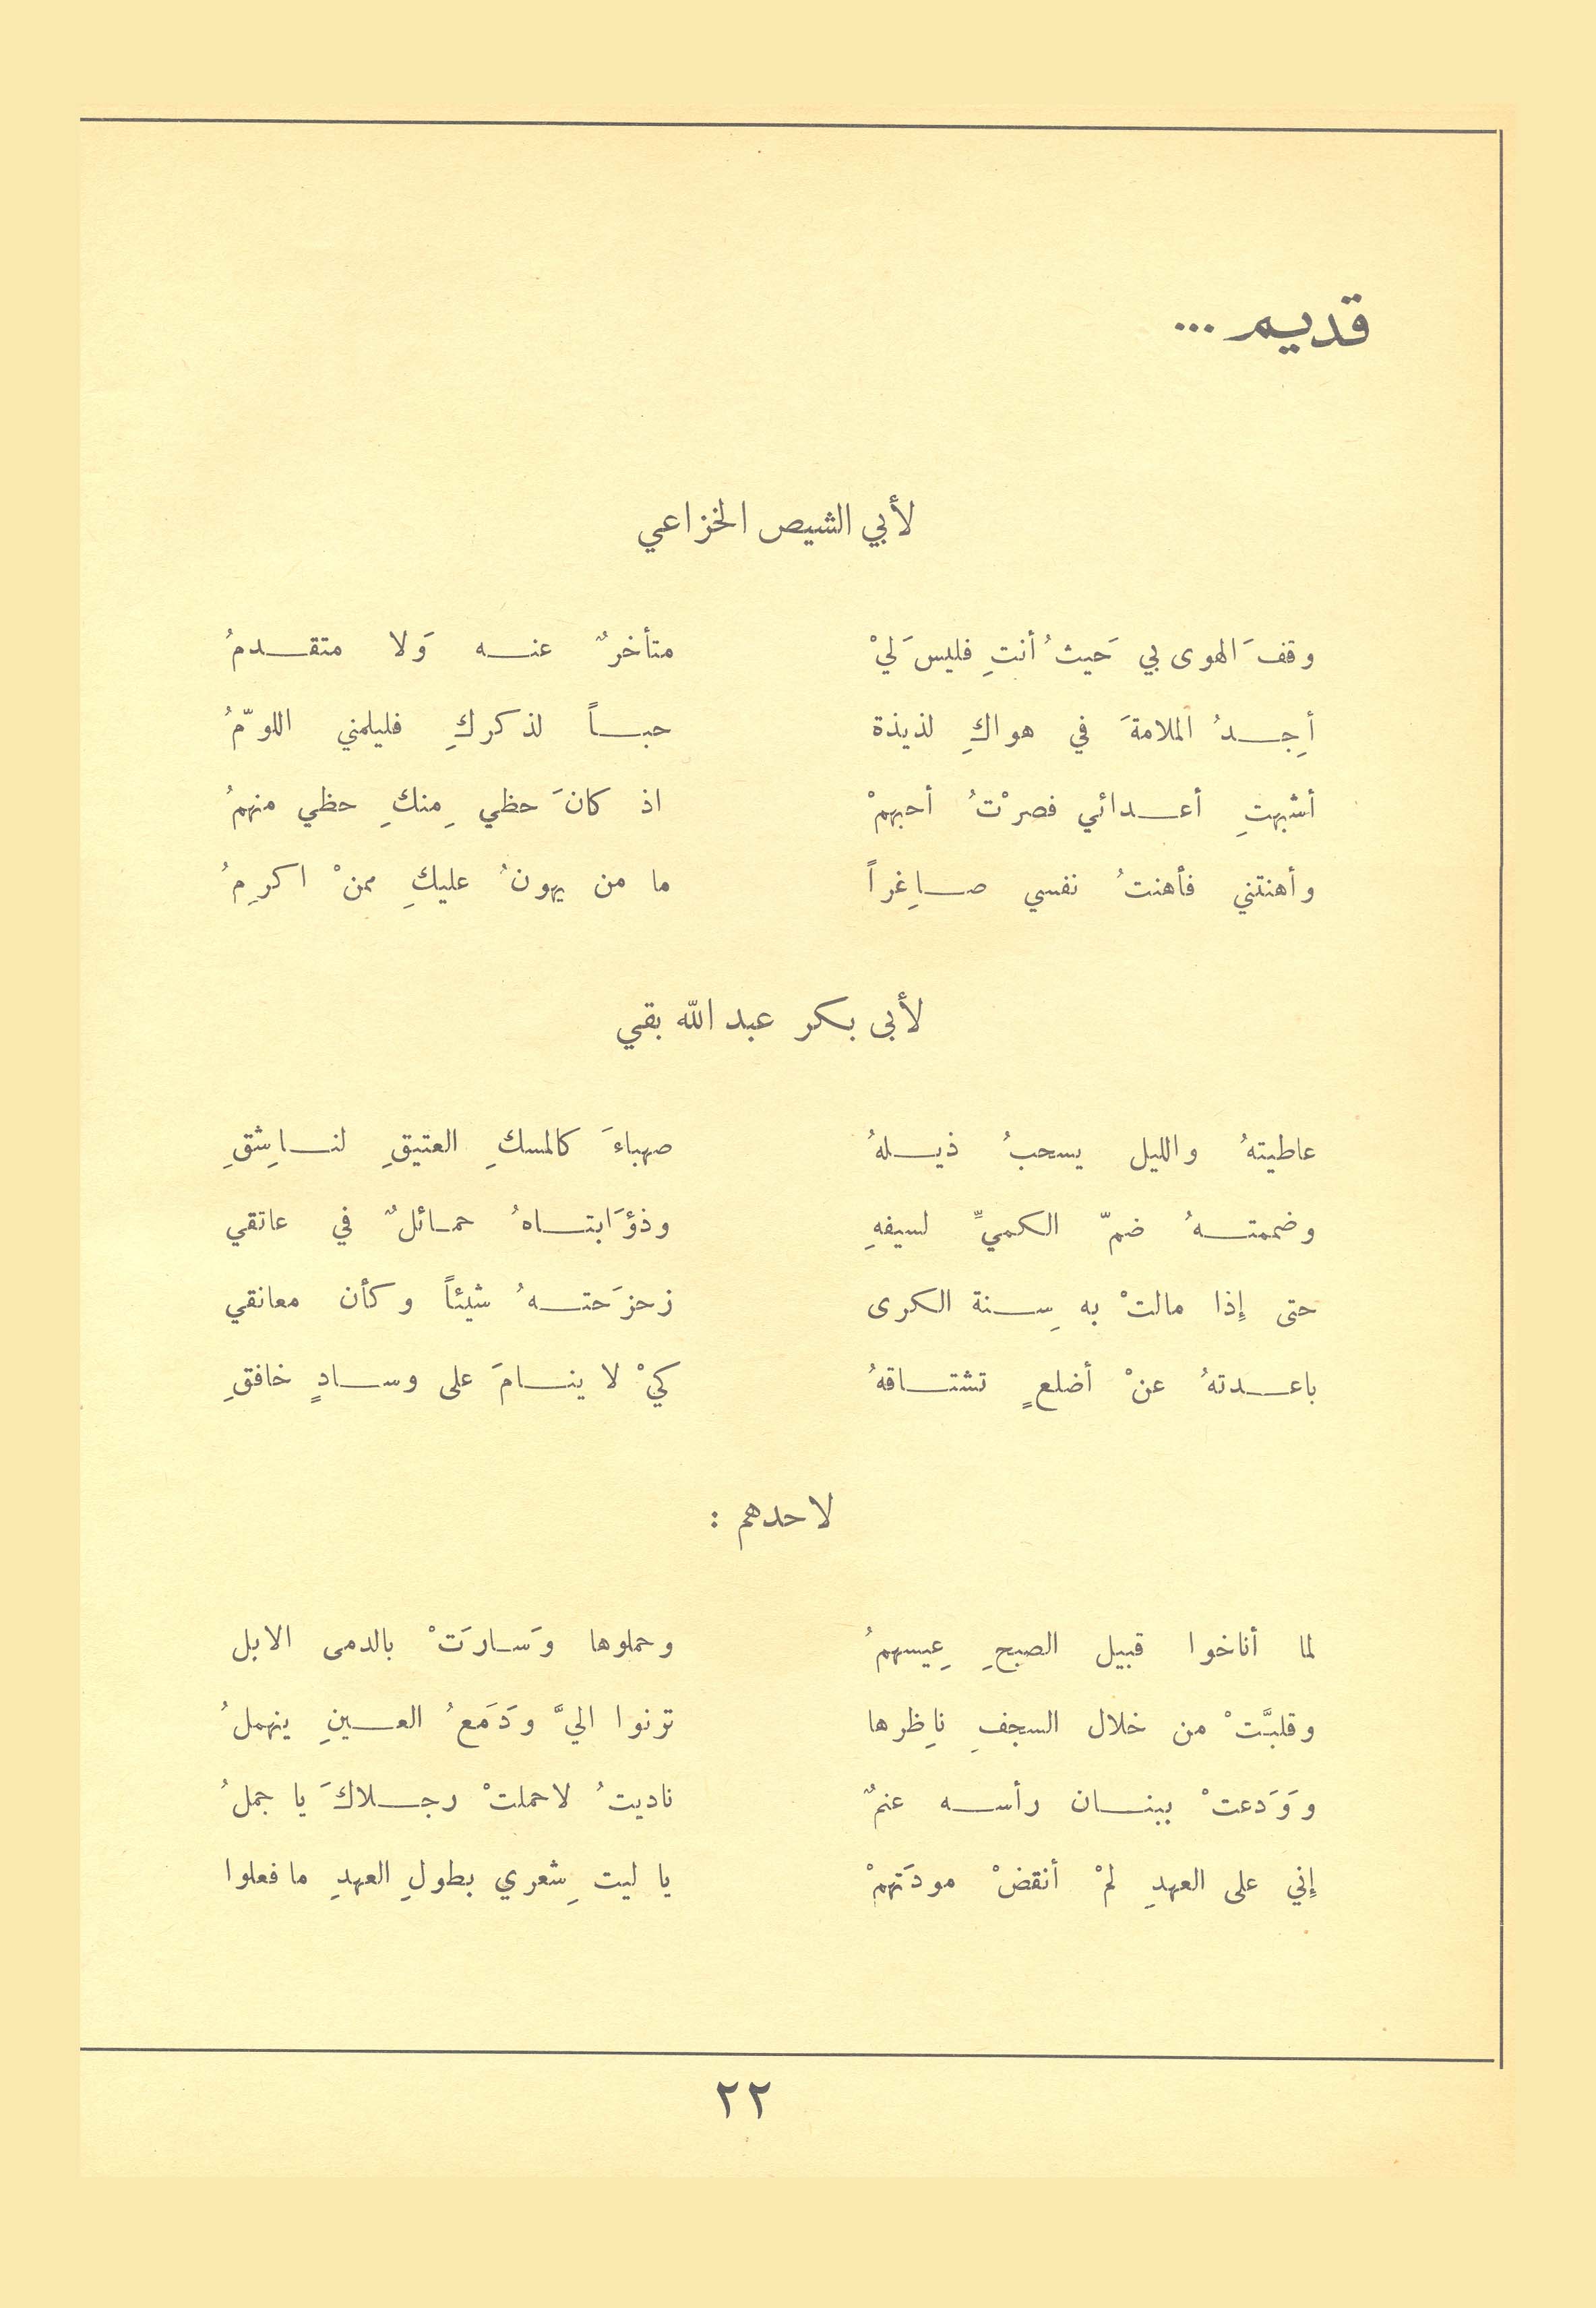 قديم ...
لأبي الشيص الخزاعي
وقفَ الهوى بي حَيثُ أنتِ فليسَ ليْ متأخرٌ عنه وَلا متقدمُ
أجِدُ الملامةَ في هواكِ لذيذة حباً لذكركِ فليلمني اللوّمُ
أشبهتِ أعدائي فصرْتُ أحبهمْ اذ كانَ حظي مِنكِ حظي منهمُ
وأهنتني فأهنتُ نفسي صاغِراً ما من يهونُ عليكِ ممنْ اكرِمُ
لأبى بكر عبد الله بقي
عاطيتهُ والليل يسحبُ ذيلهُ صهباءَ كالمسكِ العتيقِ لناشِقِ
وضممتهُ ضمّ الكميِّ لسيفهِ وذؤَابتاهُ حمائلٌ في عاتقي
حتى إذا مالتْ به سِنة الكرى زحزَحتهُ شيئاً وكأن معانقي
باعدتهُ عنْ أضلعٍ تشتاقهُ كيْ لا ينامَ على وسادٍ خافقِ
لاحدهم :
لما أناخوا قبيل الصبحِ عِيسهمُ وحملوها وَسارَتْ بالدمى الابل
وقلبَّتْ من خلال السجفِ ناظِرها ترنوا اليَّ ودَمَعُ العينِ ينهملُ
ووَدَعتْ ببنان رأسه عنمٌ ناديتُ لاحملتْ رجلاكَ يا جملُ
إني على العهدِ لمْ أنقضْ مودَتهمْ يا ليت شِعري بطولِ العهدِ مافعلوا
٢٢